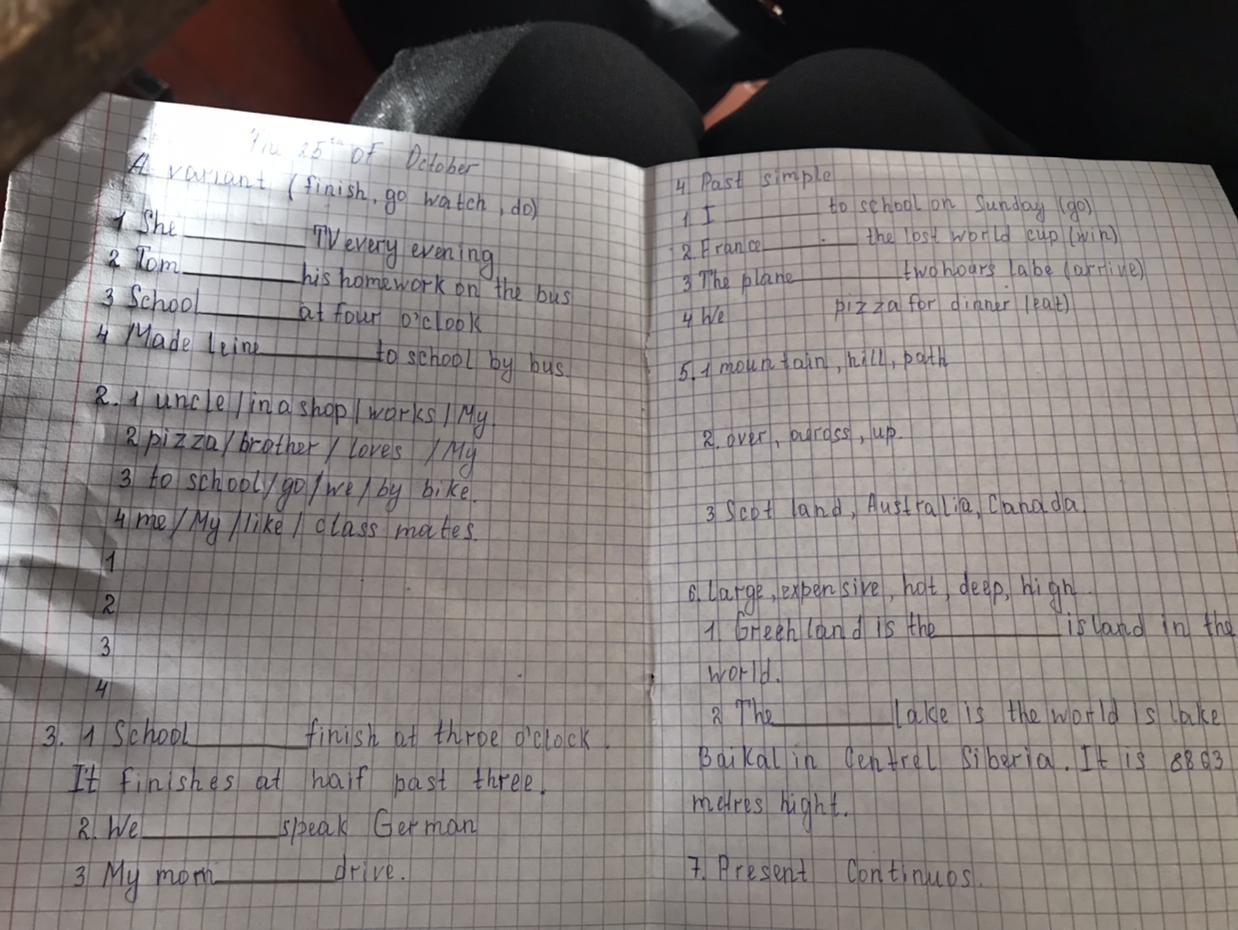 The 25th of October
A variant (finish, go watch, do)
1 She ________ TV every evening
2 Tom ________ his homework on the bus
3 School ________ at four o'clook
4 Made leine ________ to school by bus.
2. 1 uncle / in a shop / works / My.
2 pizza / brother / loves / My
3 to school / go / we / by bike.
4 me / My / like / class mates.
1
2
3
4
3. 1 School ________ finish at throe o'clock.
It finishes at haif past three.
2. We ________ speak German
3 My mom ________ drive.
4 Past simple
1 I ________ to school on Sunday (go)
2 France ________ the lost world cup (win)
3 The plane ________ two hours labe (arrive)
4 We pizza for dinner (eat)
5. 1 mountain, hill, path
2. over, across, up.
3 Scot land, Australia, Canada
6. Large, expensive, hot, deep, high.
1. Greehland is the ________ island in the
world.
2 The ________ lake is the world is lake
Baikal in Centrel Siberia. It is 8803
metres hight.
7. Present Continuos.